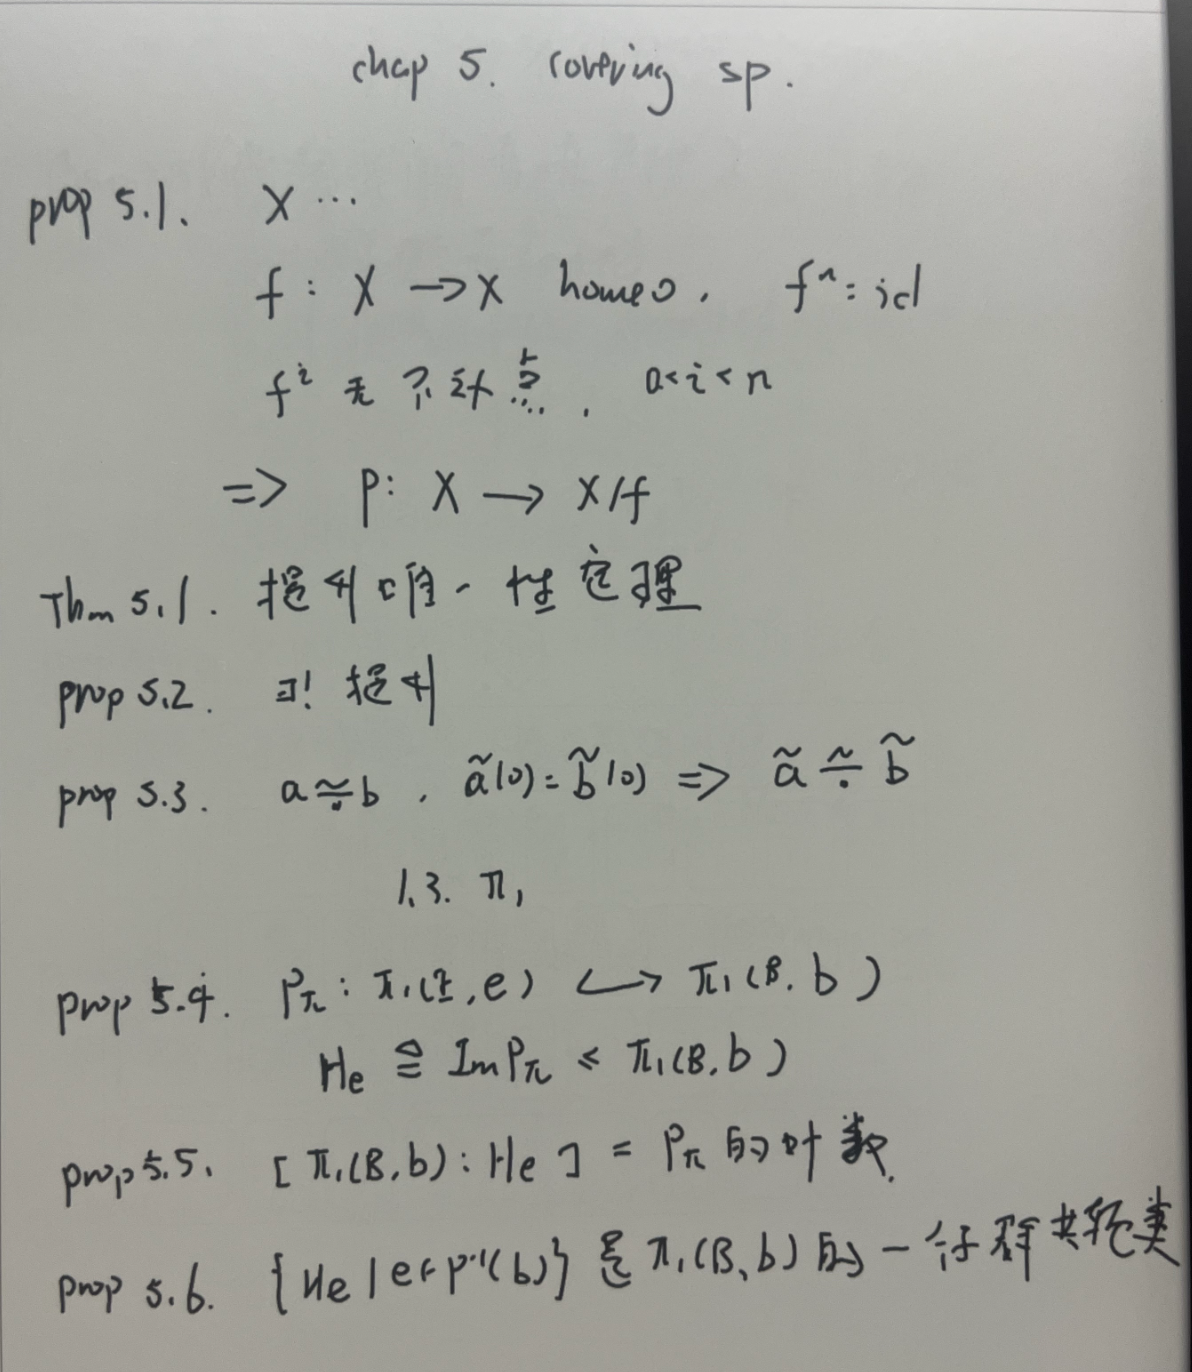 chap 5. covering sp.
prop 5.1. X ...
f : X → X homeo. fⁿ = id
fⁱ 无不动点. 0 < i < n
=> p: X → X/f
Thm 5.1. 提升唯一性定理
prop 5.2. ∃! 提升
prop 5.3. a ≃̣ b . ã(0) = b̃(0) => ã ≃̣ b̃
1.3. π₁
prop 5.4. Pπ : π₁(E, e) ↪ π₁(B. b)
He ≙ Im Pπ < π₁(B, b)
prop 5.5. [π₁(B, b) : He] = Pπ 的叶数.
prop 5.6. {He | e ∈ p⁻¹(b)} 是 π₁(B, b) 的一个子群共轭类